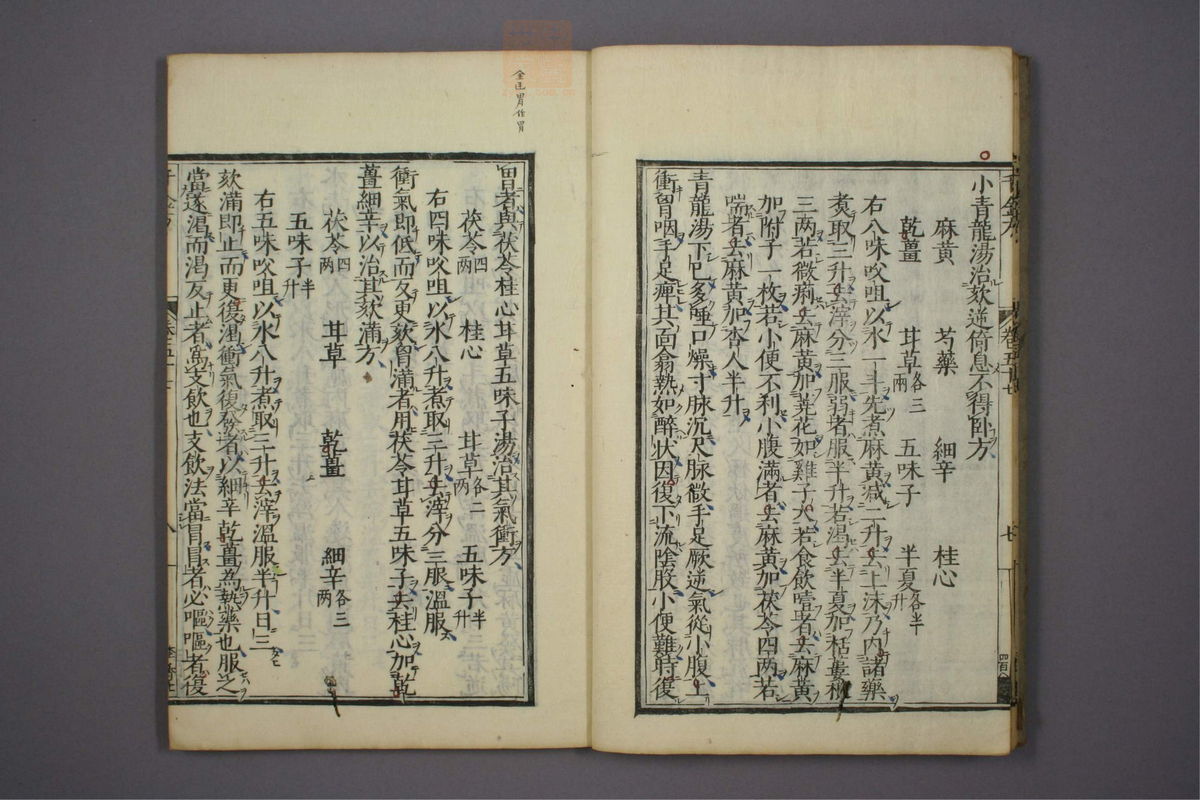 小青龍湯治欬逆倚息不得卧方
麻黃 芍藥 細辛 桂心
乾薑 耳草各三兩 五味子 半夏各半升
右八味㕮咀以水一斗先煮麻黃減二升去上沫乃內諸藥
煮取三升去滓分三服弱者服半升若渴去半夏加栝蔞根
三兩若微痢去麻黃加蕘花如雞子大若食飲噎者去麻黃
加附子一枚若小便不利小腹滿者去麻黃加茯苓四兩若
喘者去麻黃加杏人半升
青龍湯下已多唾口燥寸脉沉尺脉微手足厥逆氣從小腹上
衝胷咽手足痺其面翕熱如醉狀因復下流陰股小便難時復
冒者與茯苓桂心耳草五味子湯治其氣衝方
茯苓四兩 桂心 耳草各二兩 五味子半升
右四味㕮咀以水八升煮取三升去滓分三服溫服
衝氣即低而反更欬胷滿者用茯苓耳草五味子去桂心加乾
薑細辛以治其欬滿方
茯苓四兩 耳草 乾薑 細辛各三兩
五味子半升
右五味㕮咀以水八升煮取三升去滓溫服半升日三
欬滿即止而更復渴衝氣復發者以細辛乾薑為熱藥也服之
當遂渴而渴反止者為支飲也支飲法當冒冒者必嘔嘔者復